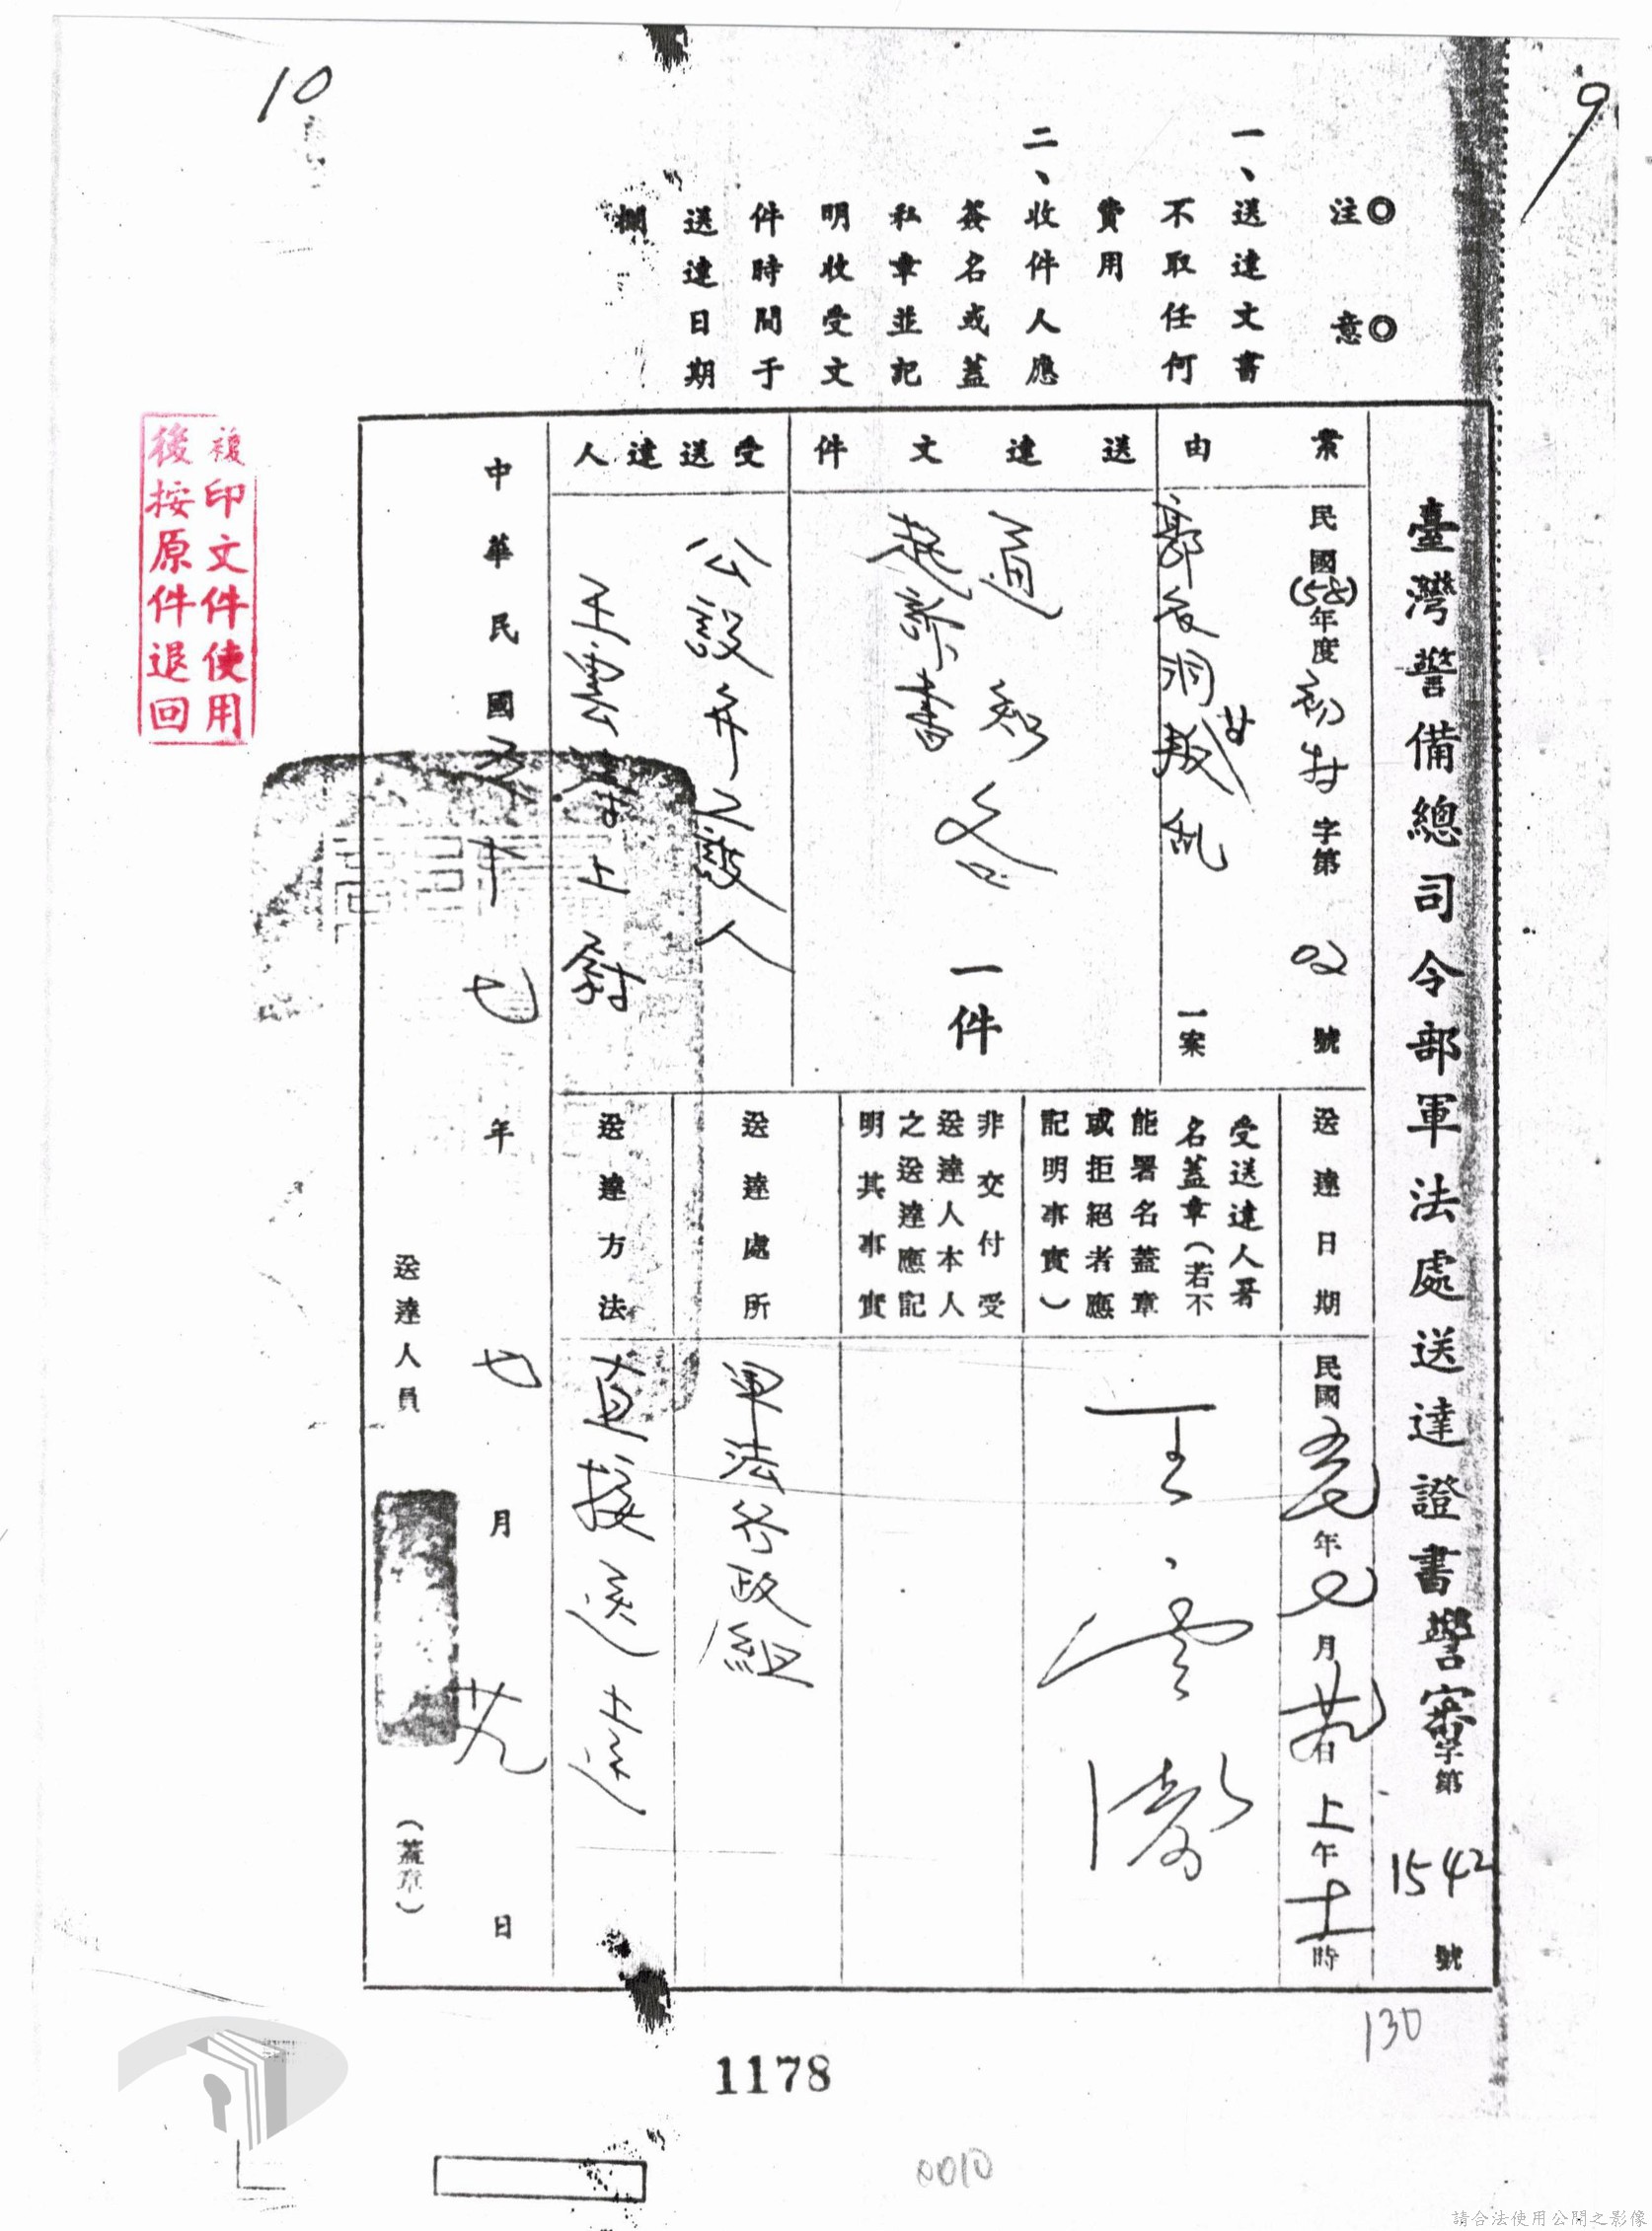 10
9
◎注　意◎
一、送達文書
不取任何
費用
二、收件人應
簽名或蓋
私章並記
明收受文
件時間于
送達日期
欄
臺灣警備總司令部軍法處送達證書 警審字第1542號
案由
民國(58)年度初字第號
郭衣洞叛乱一案
送達文件
通知
起訴書
各
一件
受送達人
公設辯護人
王雲濤上尉
送達日期
民國年月日上午十時
受送達人署
名蓋章(若不
能署名蓋章
或拒絕者應
記明事實)
王雲濤
非交付受
送達人本人
之送達應記
明其事實
送達處所
軍法行政組
送達方法
直接送達
中華民國五十七年七月廿九日
送達人員(蓋章)
複印文件使用
後按原件退回
130
1178
0010
請合法使用公開之影像